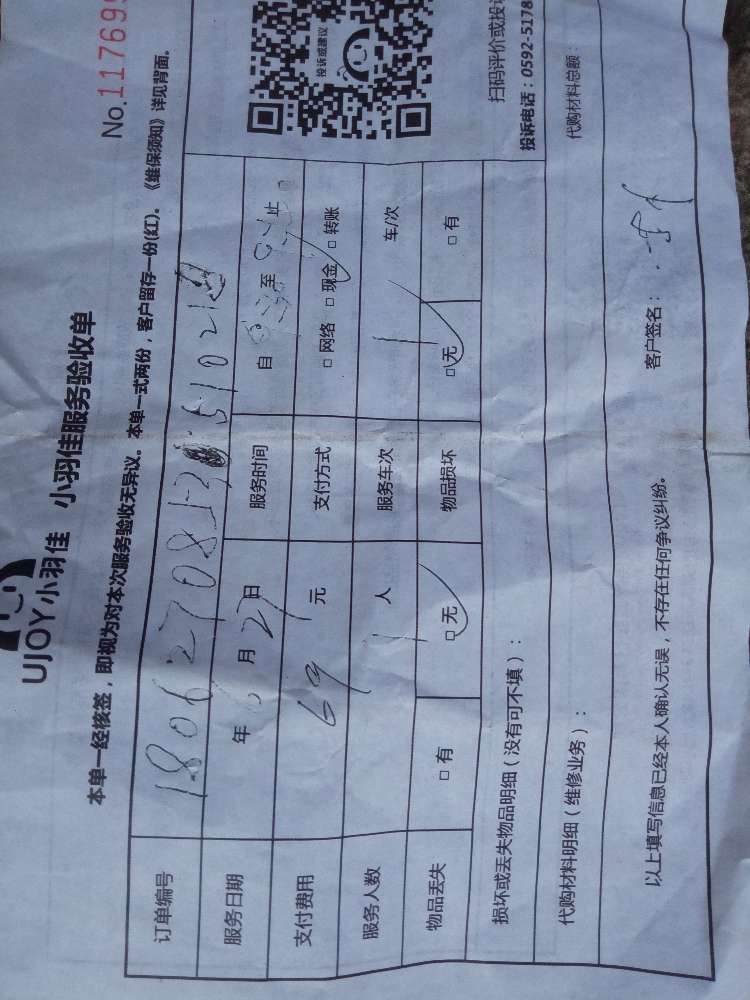 UJOY小羽佳 小羽佳服务验收单
No.117695
本单一经核签，即视为对本次服务验收无异议。本单一式两份，客户留存一份(红)。《维保须知》详见背面。
订单编号
服务日期 年 月 27 日 服务时间 自 至 止
支付费用 69 元 支付方式 □ 网络 □ 现金 □ 转账
服务人数 1 人 服务车次 1 车/次
物品丢失 □ 有 □ 无 物品损坏 □ 无 □ 有
投诉或建议
扫码评价或投诉
投诉电话：0592-5178
损坏或丢失物品明细（没有可不填）：
代购材料明细（维修业务）： 代购材料总额：
以上填写信息已经本人确认无误，不存在任何争议纠纷。 客户签名：